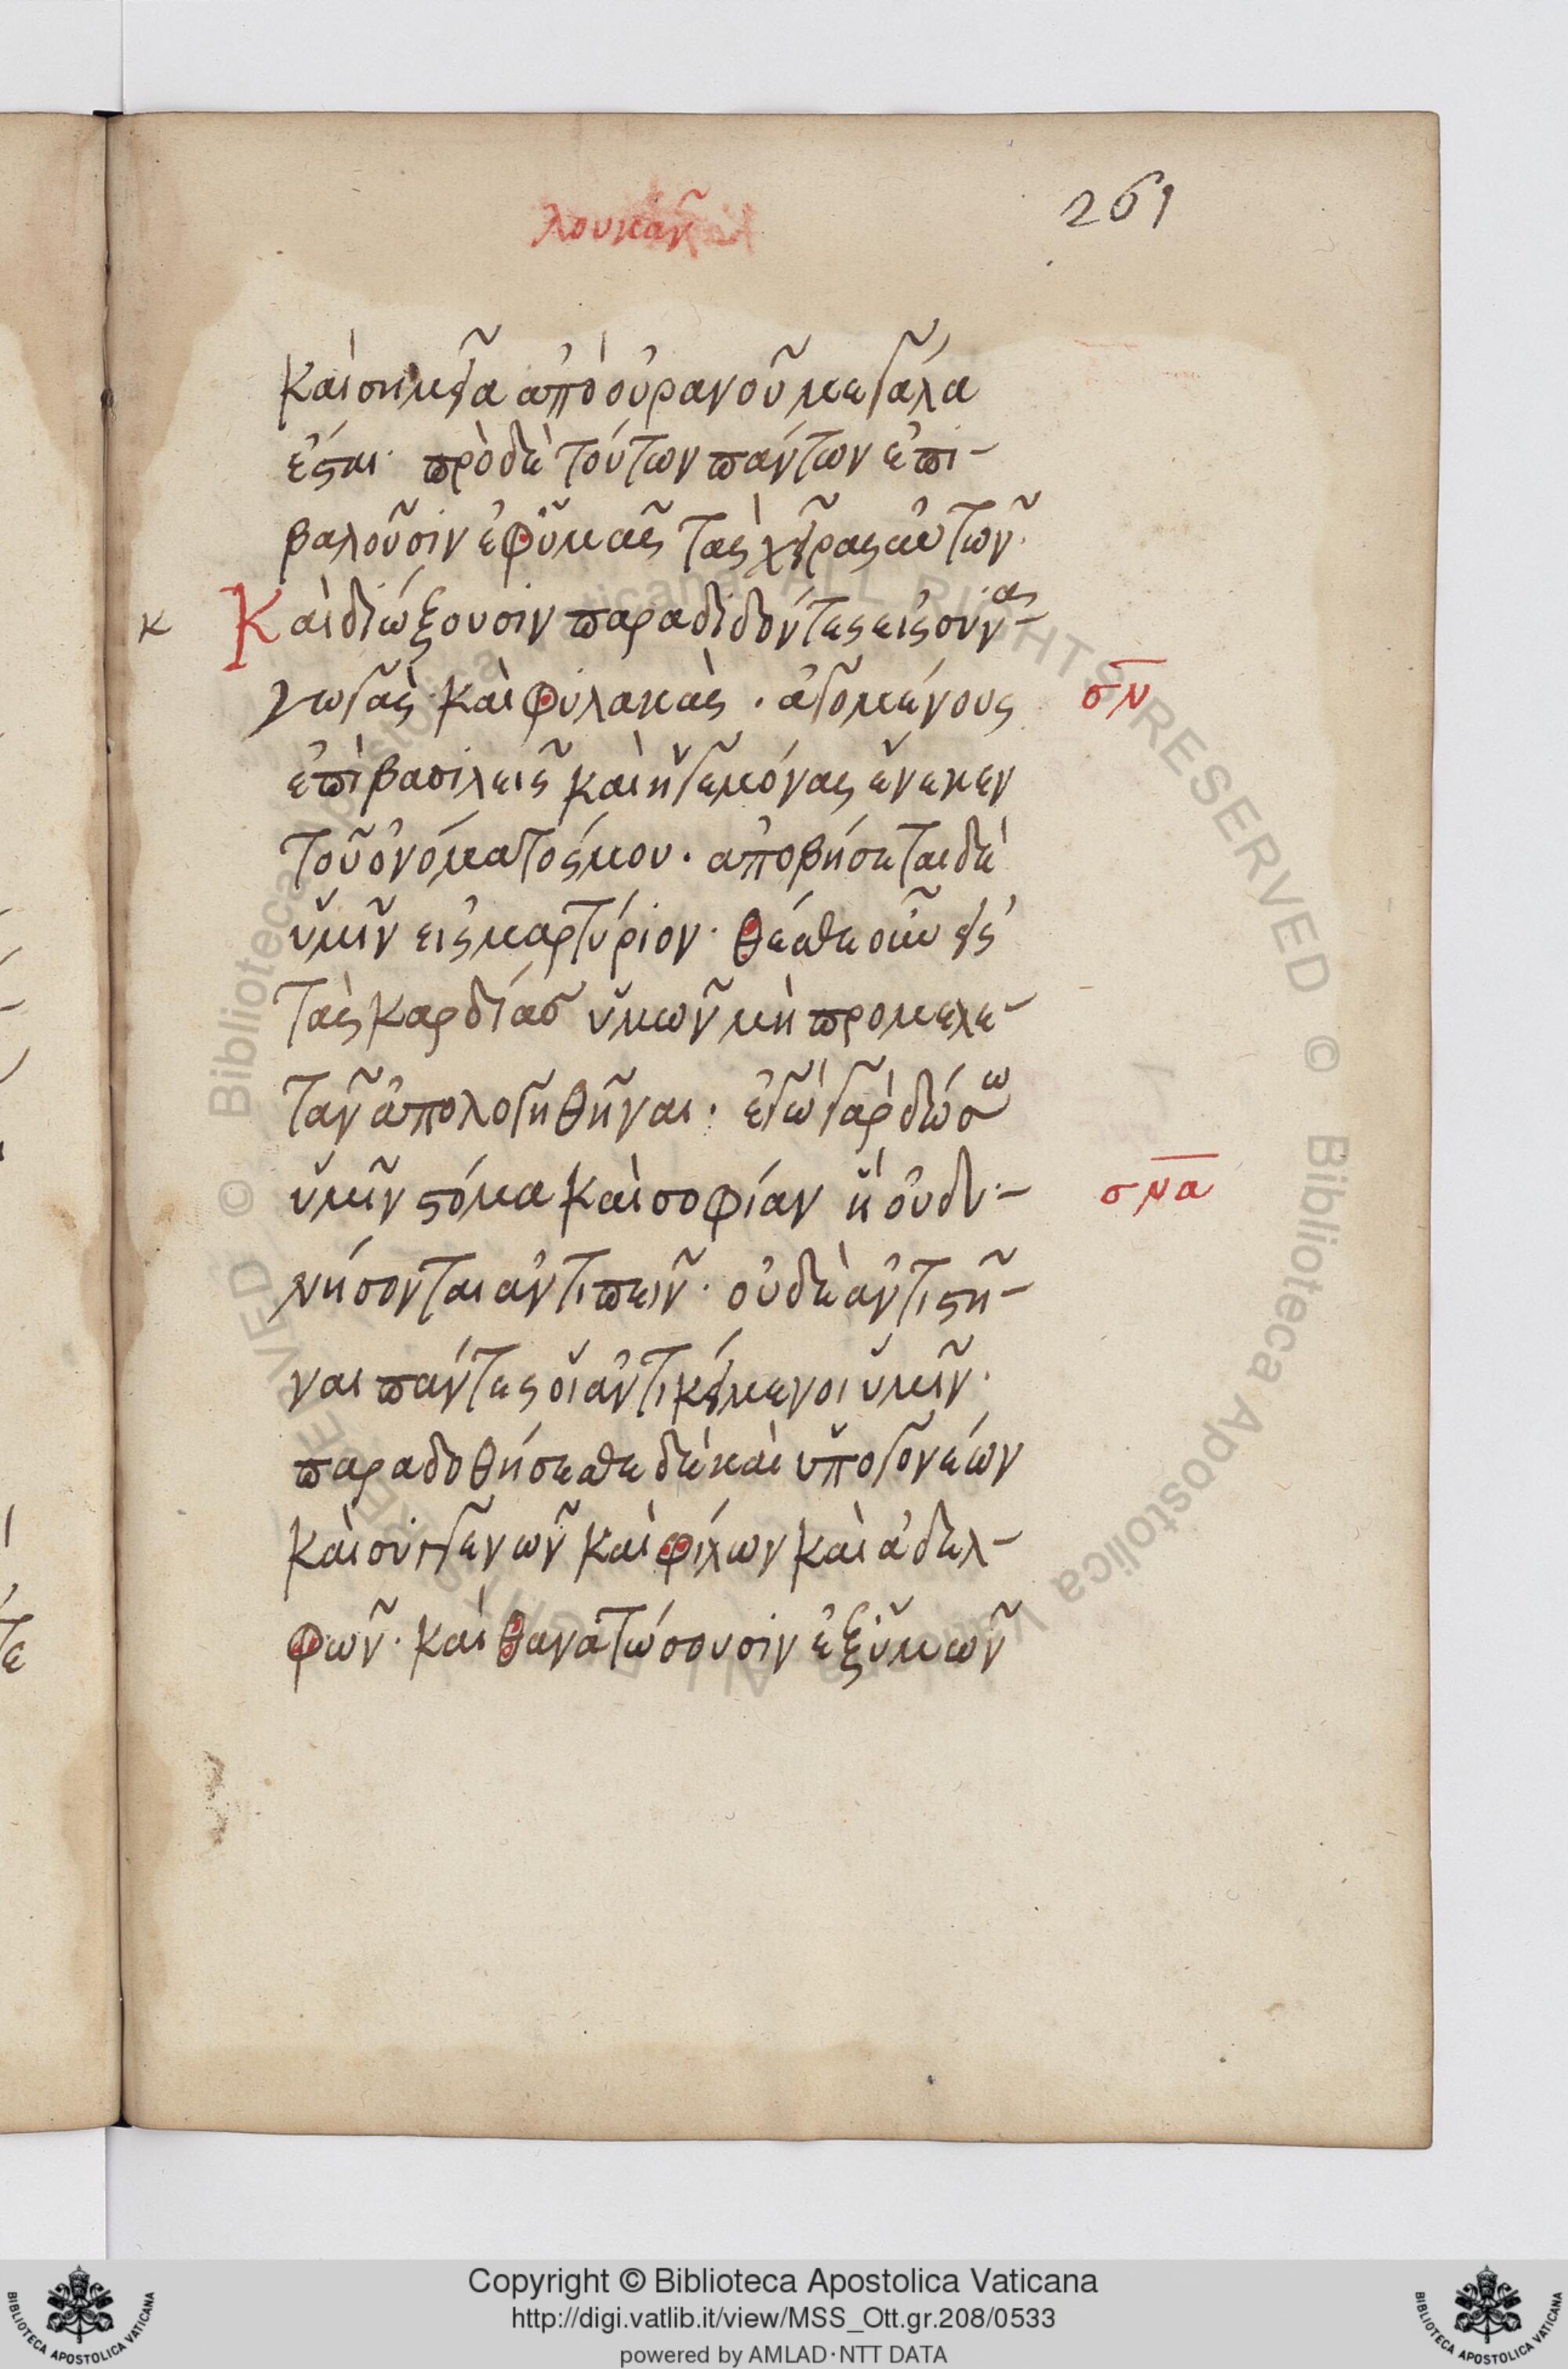 λουκᾶν
261
καὶ σημεῖα ἀπὸ οὐρανοῦ μεγάλα
ἔσται· πρὸ δὲ τούτων πάντων ἐπι-
βαλοῦσιν ἐφ ὑμᾶς τὰς χεῖρας αὐτῶν·
κ Καὶ διώξουσιν παραδιδόντες εἰς συνα-
γωγὰς καὶ φυλακὰς· ἀγομένους σν
ἐπὶ βασιλεῖς καὶ ἡγεμόνας ἕνεκεν
τοῦ ὀνόματός μου· ἀποβήσεται δὲ
ὑμῖν εἰς μαρτύριον· θέσθε οὖν εἰς
τὰς καρδίας ὑμῶν μὴ προμελε-
τᾶν ἀπολογηθῆναι· ἐγὼ γὰρ δώσω
ὑμῖν στόμα καὶ σοφίαν ἧ οὐ δυ- σνα
νήσονται ἀντιπεῖν· οὐδὲ ἀντιστῆ-
ναι πάντες οἱ ἀντικείμενοι ὑμῖν·
παραδοθήσεσθε δὲ καὶ ὑπο γονέων
καὶ συγγενῶν καὶ φίλων καὶ ἀδελ-
φῶν· καὶ θανατώσουσιν ἐξ ὑμῶν
Copyright © Biblioteca Apostolica Vaticana
http://digi.vatlib.it/view/MSS_Ott.gr.208/0533
powered by AMLAD·NTT DATA